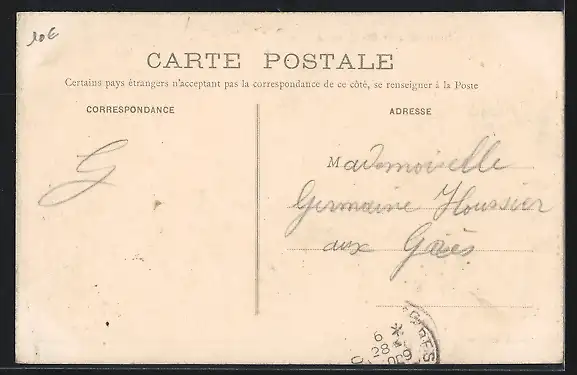 10€
CARTE POSTALE
Certains pays étrangers n'acceptant pas la correspondance de ce côté, se renseigner à la Poste
CORRESPONDANCE
ADRESSE
G
Mademoiselle
Germaine Houssier
aux Grès
6 *
28 - 9